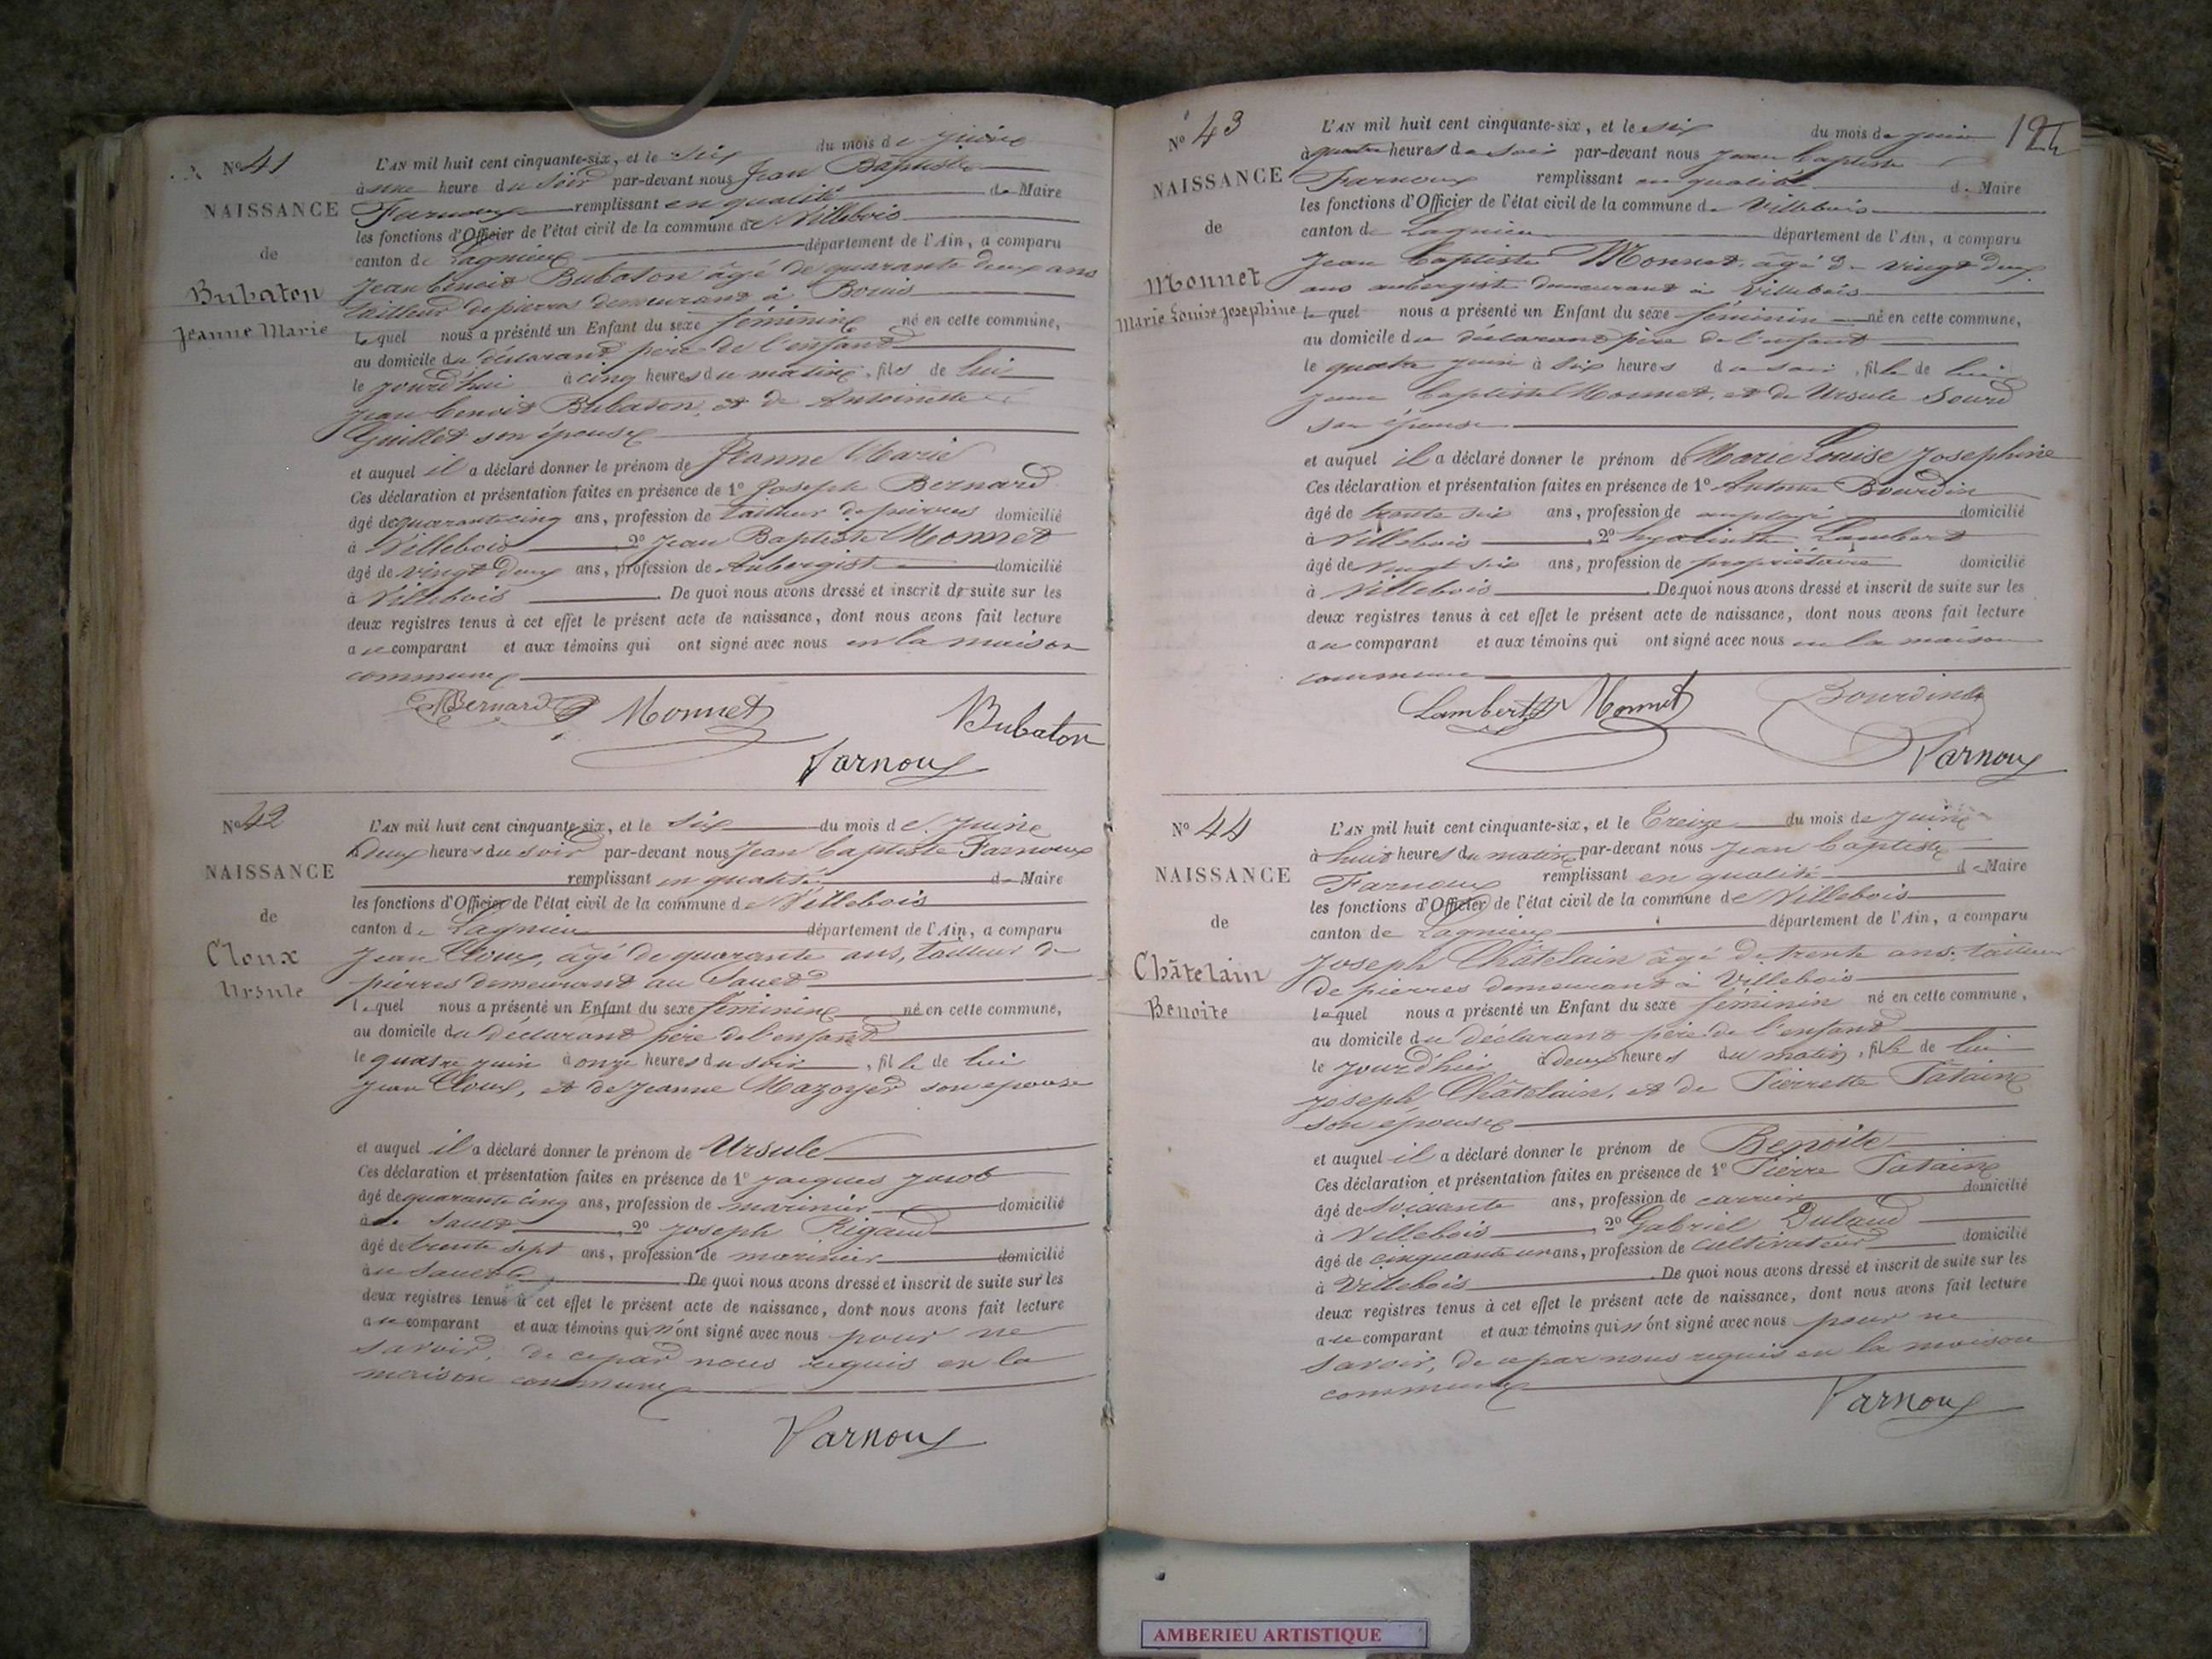 N° 41
NAISSANCE
de
Bubaton
Jeanne Marie
L'AN mil huit cent cinquante-six, et le six du mois de juin
à une heure du soir par-devant nous Jean Baptiste
Farnoux remplissant en qualité de Maire
les fonctions d'Officier de l'état civil de la commune de Villebois
canton de Lagnieu département de l'Ain, a comparu
Jean Benoit Bubaton âgé de quarante deux ans
tailleur de pierres demeurant à Bouis
lequel nous a présenté un Enfant du sexe féminin né en cette commune,
au domicile du déclarant père de l'enfant
le jourd'hui à cinq heures du matin, fils de lui
Jean Benoit Bubaton, et de Antoinette
Guillet son épouse
et auquel il a déclaré donner le prénom de Jeanne Marie
Ces déclaration et présentation faites en présence de 1° Joseph Bernard
âgé de quarante cinq ans, profession de tailleur de pierres domicilié
à Villebois 2° Jean Baptiste Monnet
âgé de vingt deux ans, profession de Aubergiste domicilié
à Villebois De quoi nous avons dressé et inscrit de suite sur les
deux registres tenus à cet effet le présent acte de naissance, dont nous avons fait lecture
au comparant et aux témoins qui ont signé avec nous en la maison
commune
Bernard Monnet Bubaton
Farnoux
N° 42
NAISSANCE
de
Cloux
Ursule
L'AN mil huit cent cinquante-six, et le six du mois de juin
à deux heures du soir par-devant nous Jean Baptiste Farnoux
remplissant en qualité de Maire
les fonctions d'Officier de l'état civil de la commune de Villebois
canton de Lagnieu département de l'Ain, a comparu
Jean Cloux, âgé de quarante ans, tailleur de
pierres demeurant au Sault
lequel nous a présenté un Enfant du sexe féminin né en cette commune,
au domicile du déclarant père de l'enfant
le quatre juin à onze heures du soir, fille de lui
Jean Cloux, et de Jeanne Mazoyer son épouse
et auquel il a déclaré donner le prénom de Ursule
Ces déclaration et présentation faites en présence de 1° Jacques Jacob
âgé de quarante cinq ans, profession de marinier domicilié
2° Joseph Rigaud
âgé de trente sept ans, profession de marinier domicilié
De quoi nous avons dressé et inscrit de suite sur les
deux registres tenus à cet effet le présent acte de naissance, dont nous avons fait lecture
au comparant et aux témoins qui n'ont signé avec nous pour ne
savoir, de ce par nous requis en la
maison commune
Farnoux
124
N° 43
NAISSANCE
de
Monnet
Marie Louise Josephine
L'AN mil huit cent cinquante-six, et le six du mois de juin
à quatre heures du soir par-devant nous Jean Baptiste
Farnoux remplissant en qualité de Maire
les fonctions d'Officier de l'état civil de la commune de Villebois
canton de Lagnieu département de l'Ain, a comparu
Jean Baptiste Monnet, âgé de vingt deux
ans aubergiste demeurant à Villebois
lequel nous a présenté un Enfant du sexe féminin né en cette commune,
au domicile du déclarant père de l'enfant
le quatre juin à six heures du soir, fille de lui
Jean Baptiste Monnet, et de Ursule Sourd
son épouse
et auquel il a déclaré donner le prénom de Marie Louise Josephine
Ces déclaration et présentation faites en présence de 1° Antoine Bourdin
âgé de trente six ans, profession de employé domicilié
à Villebois 2° hyacinthe Lambert
âgé de vingt six ans, profession de propriétaire domicilié
à Villebois De quoi nous avons dressé et inscrit de suite sur les
deux registres tenus à cet effet le présent acte de naissance, dont nous avons fait lecture
au comparant et aux témoins qui ont signé avec nous en la maison
commune
Lambert Monnet Bourdin
Farnoux
N° 44
NAISSANCE
de
Châtelain
Benoite
L'AN mil huit cent cinquante-six, et le treize du mois de juin
à huit heures du matin par-devant nous Jean Baptiste
Farnoux remplissant en qualité de Maire
les fonctions d'Officier de l'état civil de la commune de Villebois
canton de Lagnieu département de l'Ain, a comparu
Joseph Châtelain âgé de trente ans, tailleur
de pierres demeurant à Villebois
lequel nous a présenté un Enfant du sexe féminin né en cette commune,
au domicile du déclarant père de l'enfant
le jourd'hui à deux heures du matin, fille de lui
Joseph Châtelain, et de Pierrette Patain
son épouse
et auquel il a déclaré donner le prénom de Benoite
Ces déclaration et présentation faites en présence de 1° Pierre Patain
âgé de soixante ans, profession de carrier domicilié
à Villebois 2° Gabriel Dubaud
âgé de cinquante un ans, profession de cultivateur domicilié
à Villebois De quoi nous avons dressé et inscrit de suite sur les
deux registres tenus à cet effet le présent acte de naissance, dont nous avons fait lecture
au comparant et aux témoins qui n'ont signé avec nous pour ne
savoir, de ce par nous requis en la maison
commune
Farnoux
AMBERIEU ARTISTIQUE